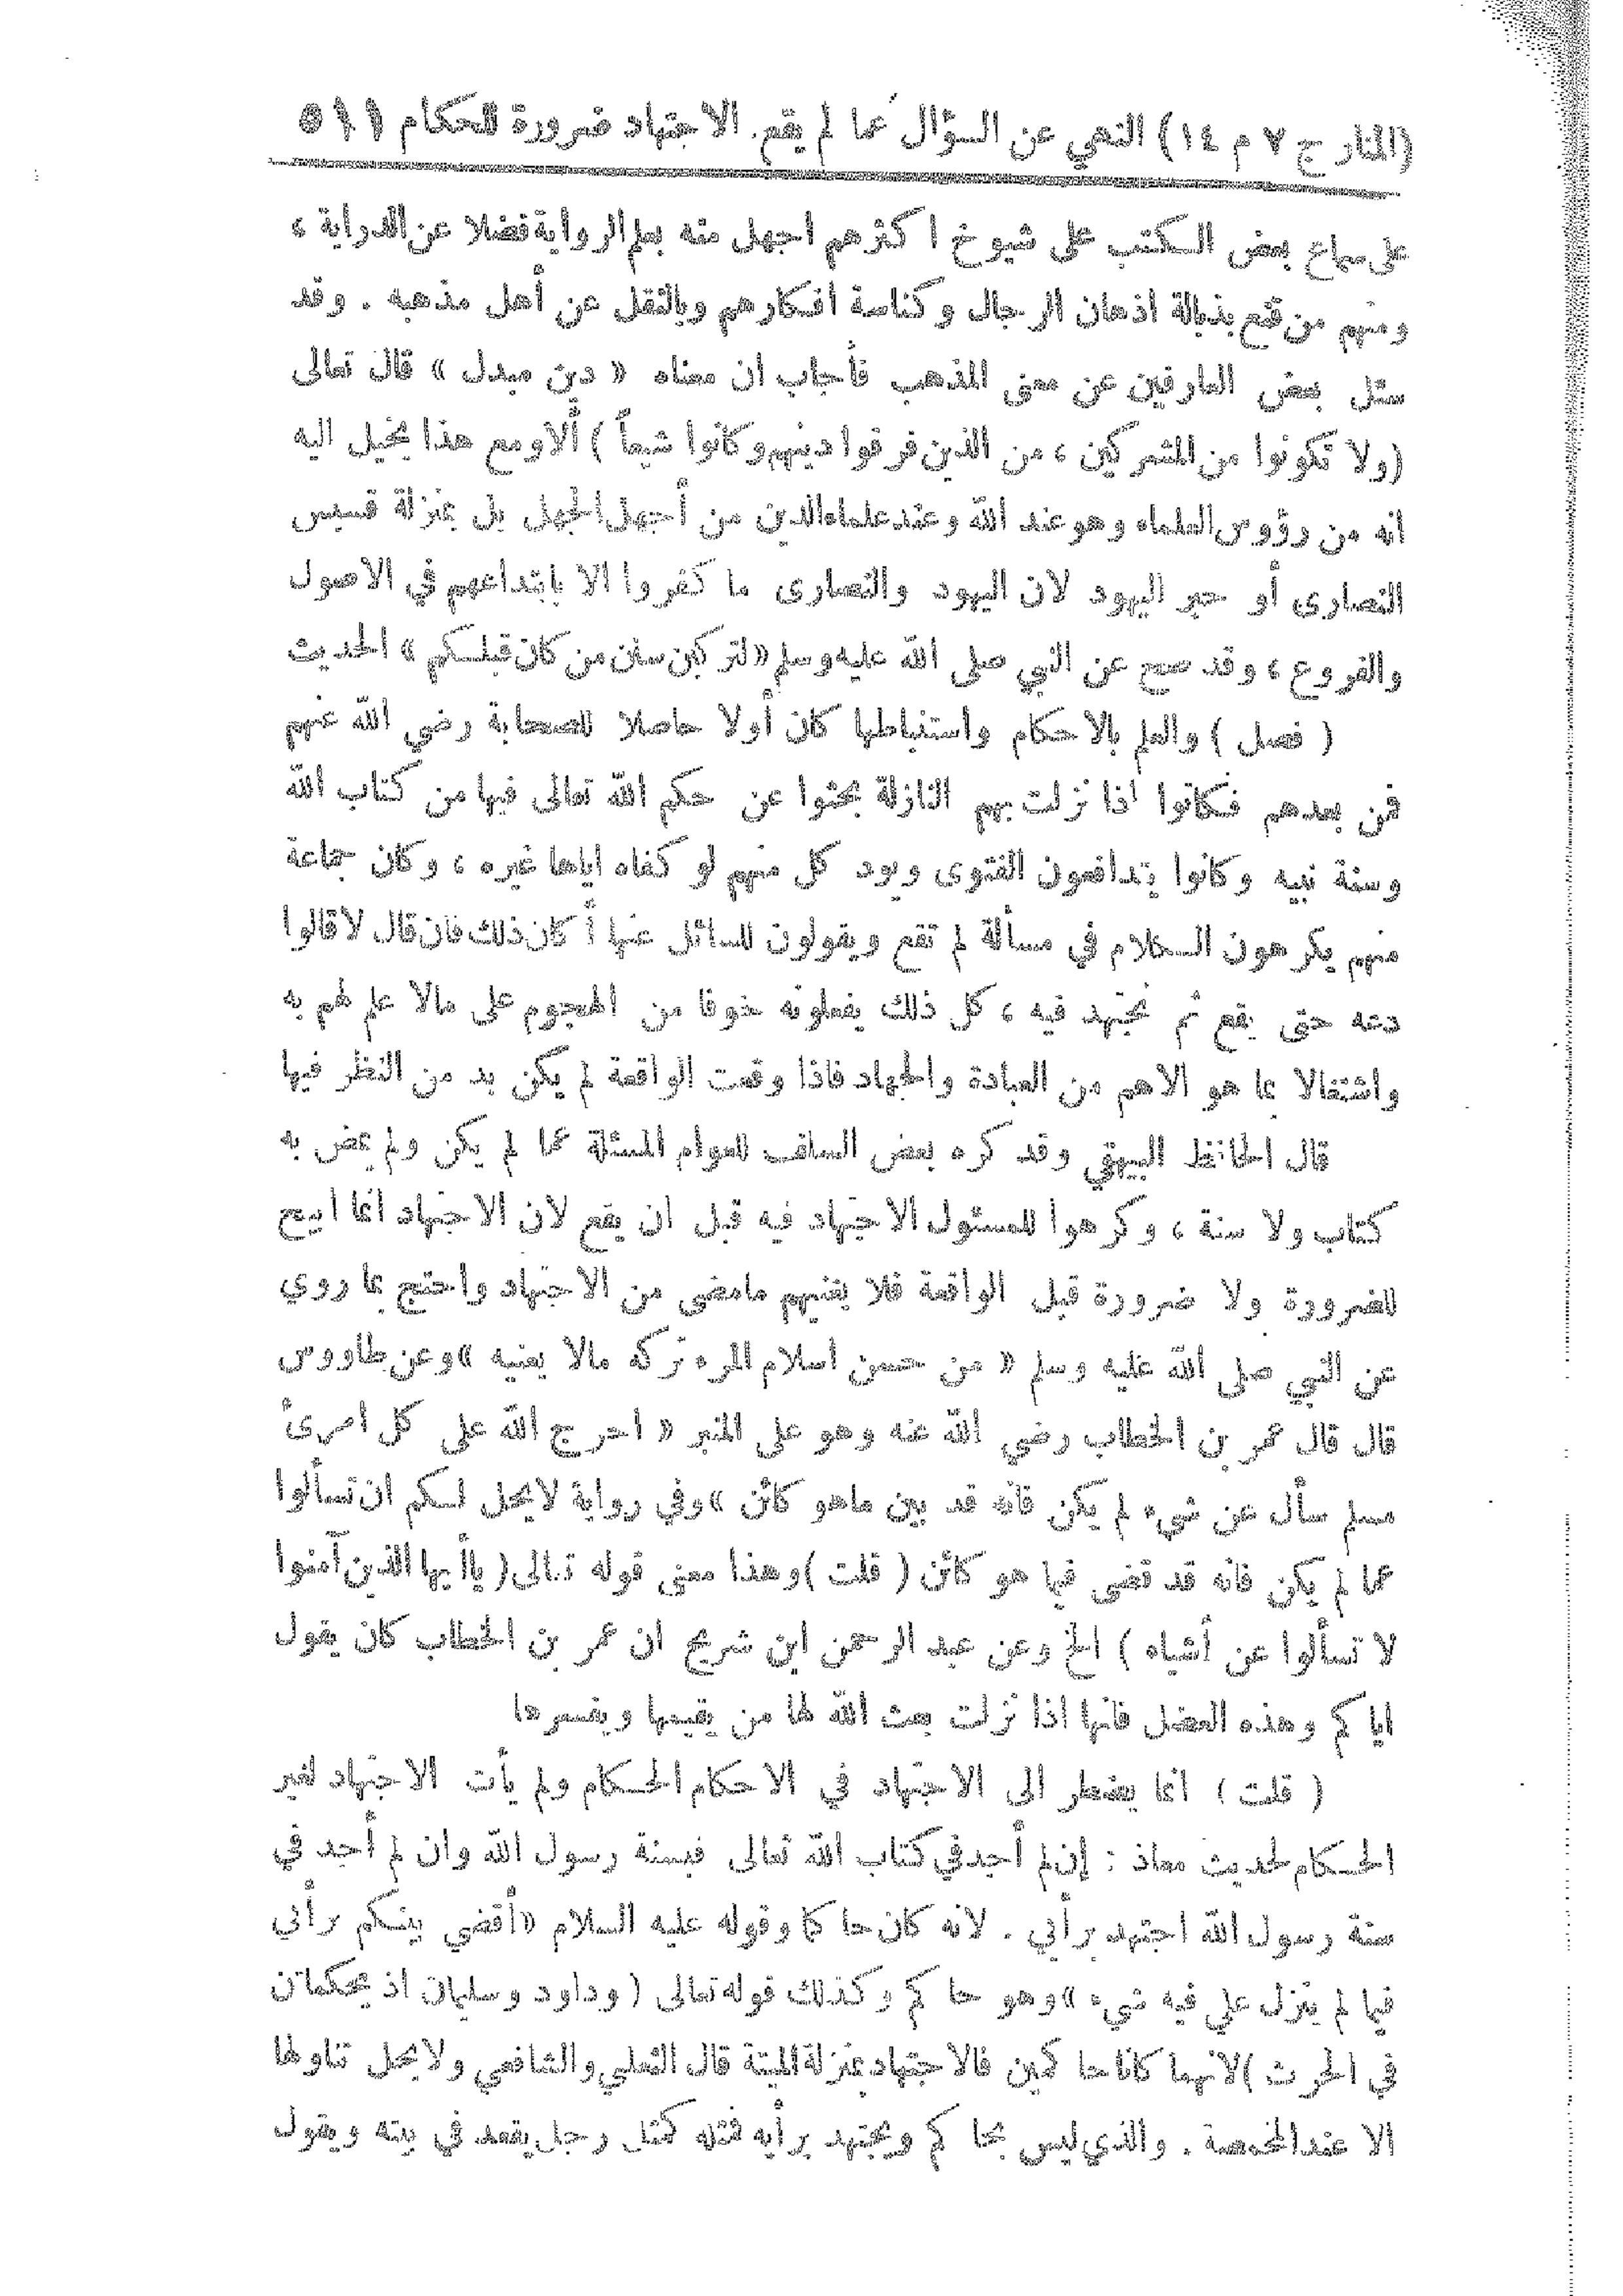 (المنار ج ٧ م ١٤) النهي عن السؤال عما لم يقع. الاجتهاد ضرورة للحكام ٥١١
على سماع بعض الكتب على شيوخ اكثرهم اجهل منه بعلم الرواية فضلا عن الدراية ،
ومنهم من قنع بذبالة اذهان الرجال وكناسة افكارهم وبالنقل عن أهل مذهبه . وقد
سئل بعض العارفين عن معنى المذهب فأجاب ان معناه « دين مبدل » قال تعالى
(ولا تكونوا من المشركين ، من الذين فرقوا دينهم وكانوا شيعاً ) ألا ومع هذا يخيل اليه
انه من رؤوس العلماء وهو عند الله وعند علماء الدين من أجهل الجهل بل بمنزلة قسيس
النصارى أو حبر اليهود لان اليهود والنصارى ما كفروا الا بابتداعهم في الاصول
والفروع ، وقد صح عن النبي صلى الله عليه وسلم «لتركبن سنن من كان قبلكم » الحديث
( فصل ) والعلم بالاحكام واستنباطها كان أولا حاصلا للصحابة رضي الله عنهم
فمن بعدهم فكانوا اذا نزلت بهم النازلة بحثوا عن حكم الله تعالى فيها من كتاب الله
وسنة نبيه وكانوا يتدافعون الفتوى ويود كل منهم لو كفاه اياها غيره ، وكان جماعة
منهم يكرهون الكلام في مسألة لم تقع ويقولون للسائل عنها أكان ذلك فان قال لا قالوا
دعه حتى يقع ثم نجتهد فيه ، كل ذلك يفعلونه خوفا من الهجوم على مالا علم لهم به
واشتغالا بما هو الاهم من العبادة والجهاد فاذا وقعت الواقعة لم يكن بد من النظر فيها
قال الحافظ البيهقي وقد كره بعض السلف للعوام المسئلة عما لم يكن ولم يمض به
كتاب ولا سنة ، وكرهوا للمسئول الاجتهاد فيه قبل ان يقع لان الاجتهاد انما ابيح
للضرورة ولا ضرورة قبل الواقعة فلا يغنيهم مامضى من الاجتهاد واحتج بما روي
عن النبي صلى الله عليه وسلم « من حسن اسلام المرء تركه مالا يعنيه »وعن طاووس
قال قال عمر بن الخطاب رضي الله عنه وهو على المنبر « احرج الله على كل امرئ
مسلم سأل عن شيء لم يكن فانه قد بين ماهو كائن »وفي رواية لايحل لكم ان تسألوا
عما لم يكن فانه قد قضى فيما هو كائن ( قلت )وهذا معنى قوله تعالى( ياأيها الذين آمنوا
لا تسألوا عن أشياء ) الخ وعن عبد الرحمن ابن شريح ان عمر بن الخطاب كان يقول
اياكم وهذه العضل فانها اذا نزلت بعث الله لها من يقيمها ويفسرها
( قلت ) انما يضطر الى الاجتهاد في الاحكام الحكام ولم يأت الاجتهاد لغير
الحكام لحديث معاذ : إن لم أجد في كتاب الله تعالى فبسنة رسول الله وان لم أجد في
سنة رسول الله اجتهد برأيي . لانه كان حاكما وقوله عليه السلام «أقضي بينكم برأيي
فيما لم ينزل علي فيه شيء »وهو حاكم وكذلك قوله تعالى ( وداود وسليمان اذ يحكمان
في الحرث )لانهما كانا حاكمين فالاجتهاد بمنزلة الميتة قال الشعبي والشافعي ولا يحل تناولها
الا عند المخمصة . والذي ليس بحاكم ويجتهد برأيه فمثله كمثل رجل يقعد في بيته ويقول